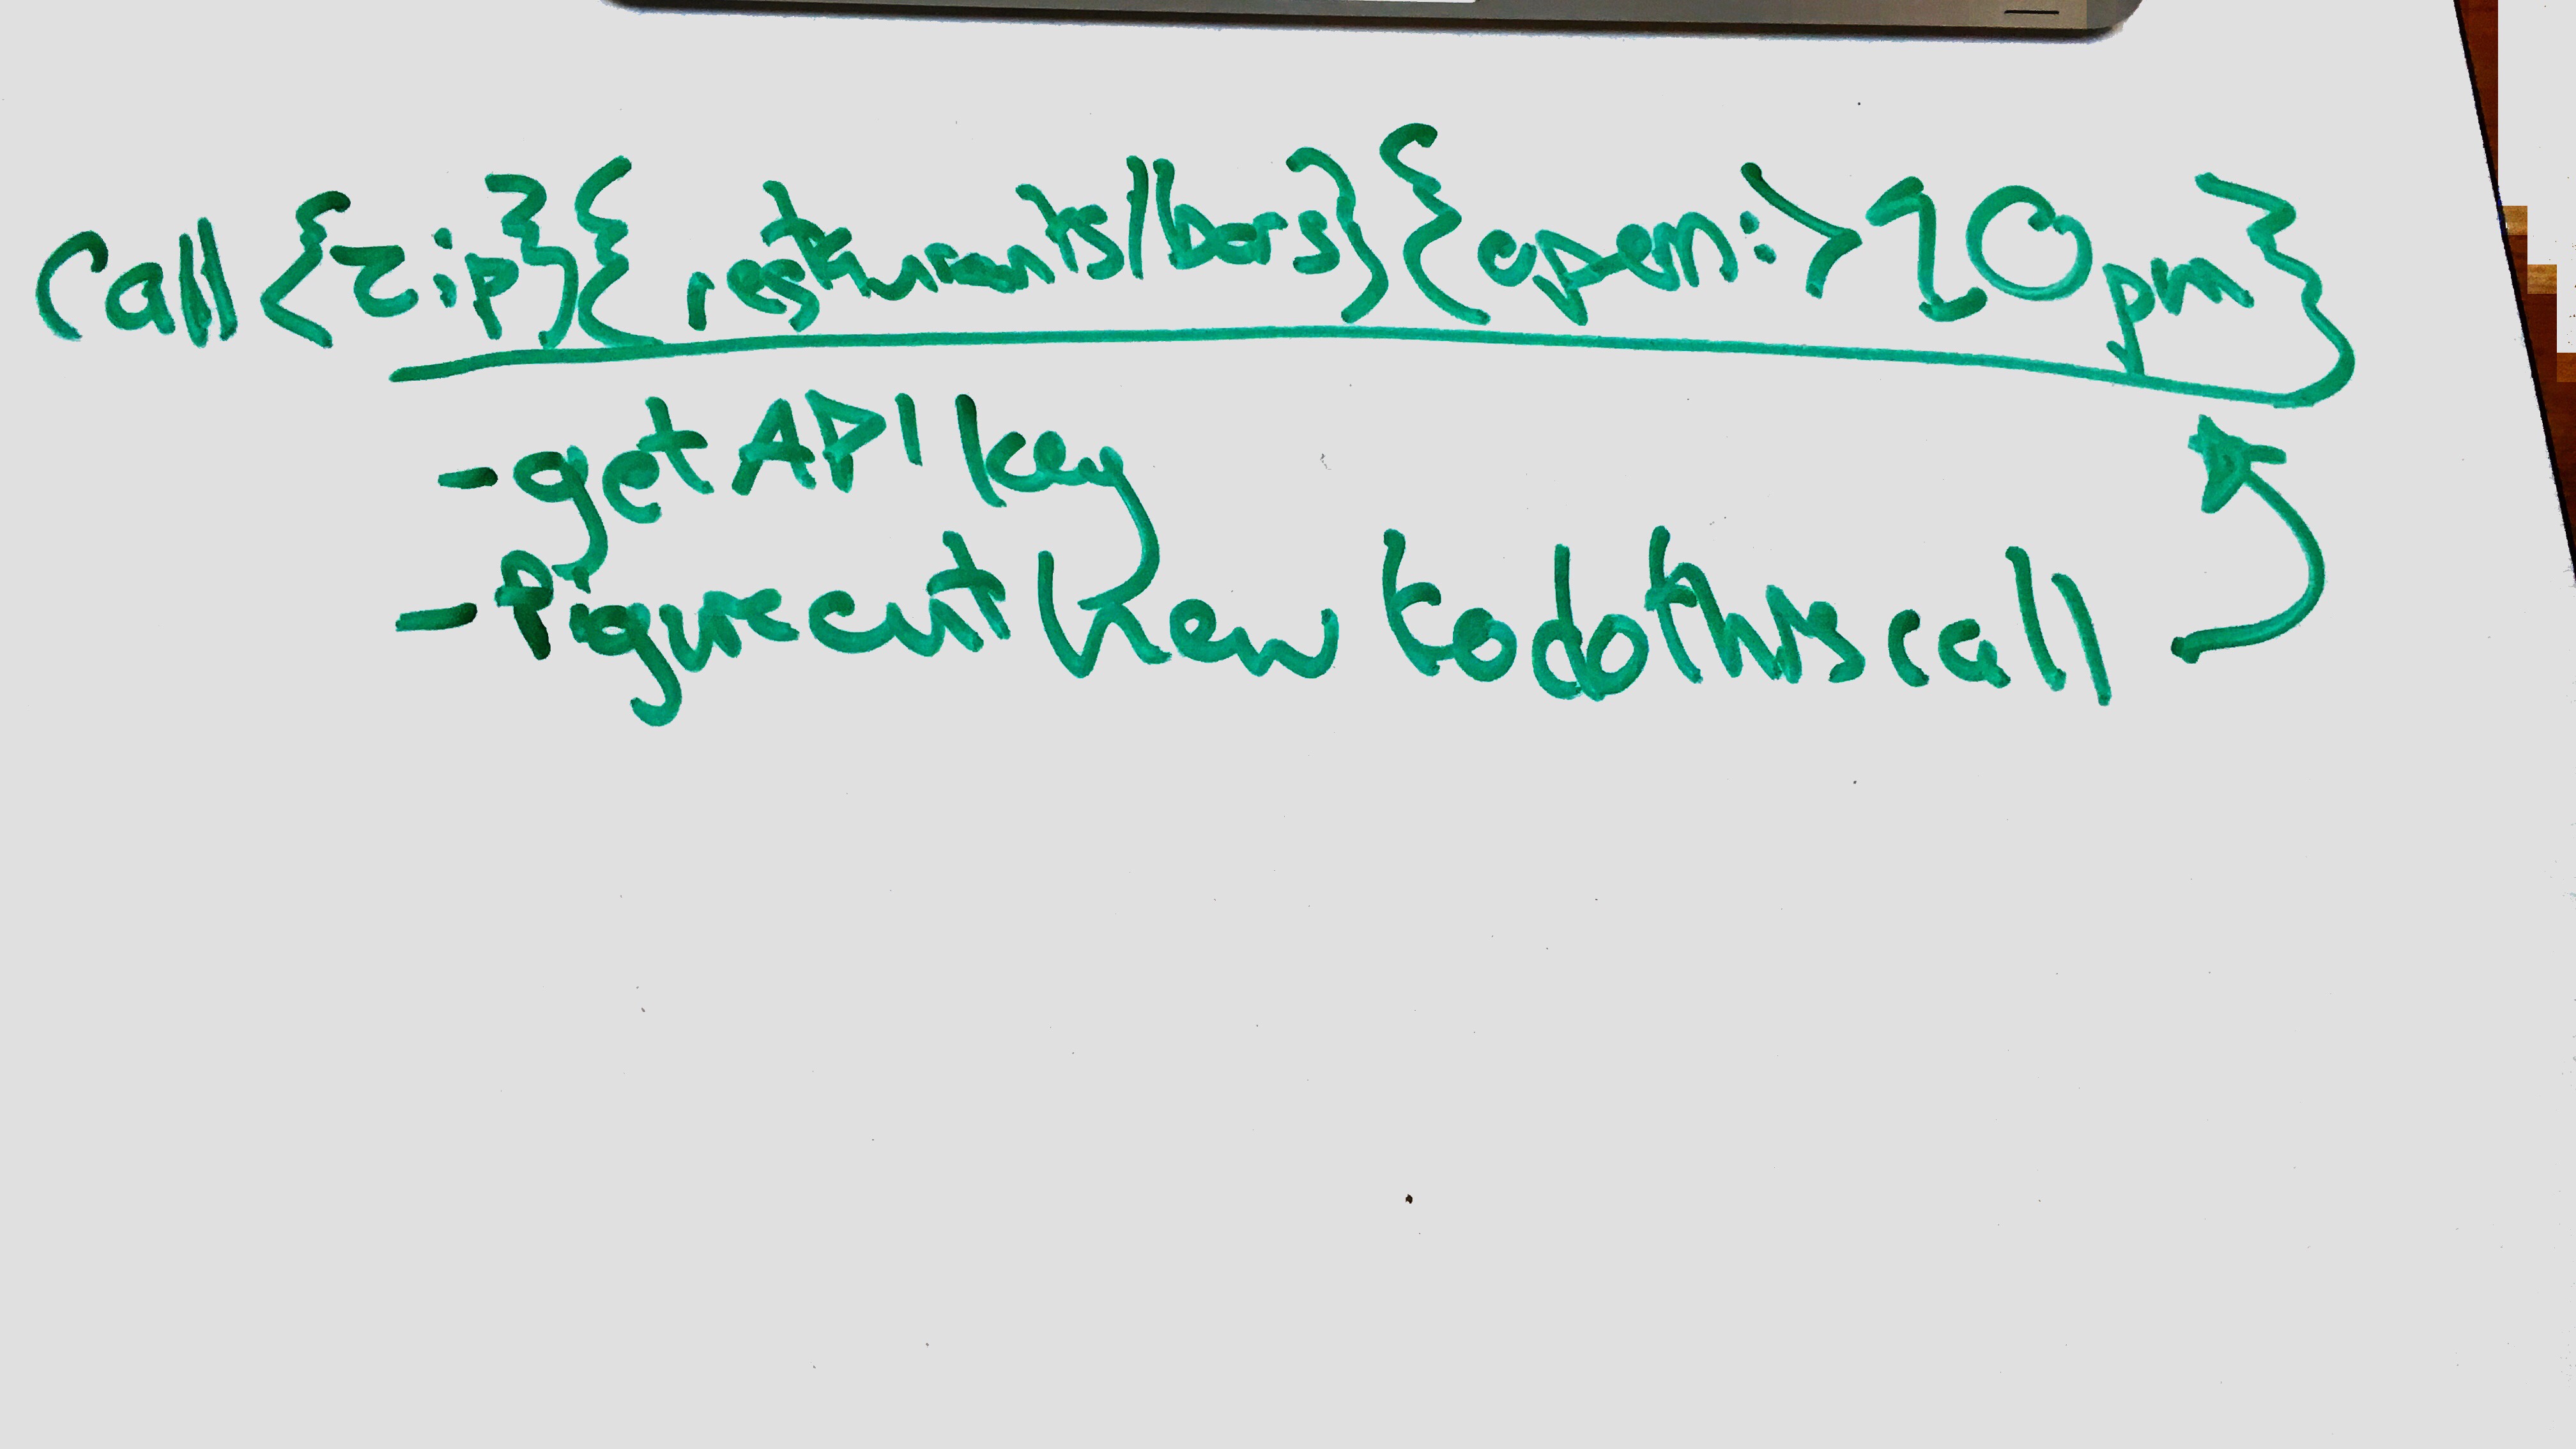 Call {zip}{restaurants/bars}{open:>10pm}
- get API key
- figure out how to do this call